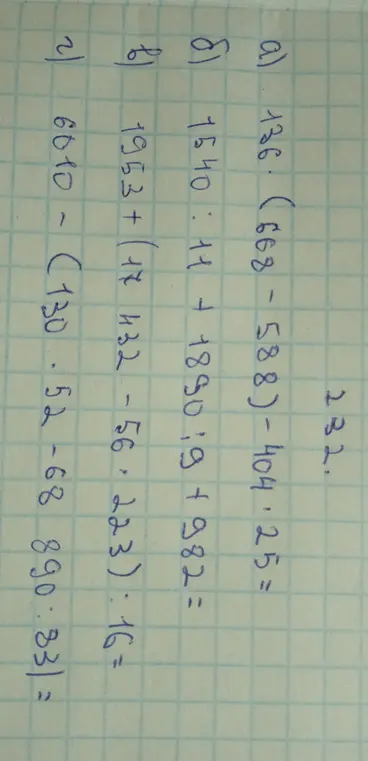 232.
а) 136 · (668 - 588) - 404 · 25 =
б) 1540 : 11 + 1890 : 9 + 982 =
в) 1953 + (17 432 - 56 · 223) : 16 =
г) 6010 - (130 · 52 - 68 890 : 83) =